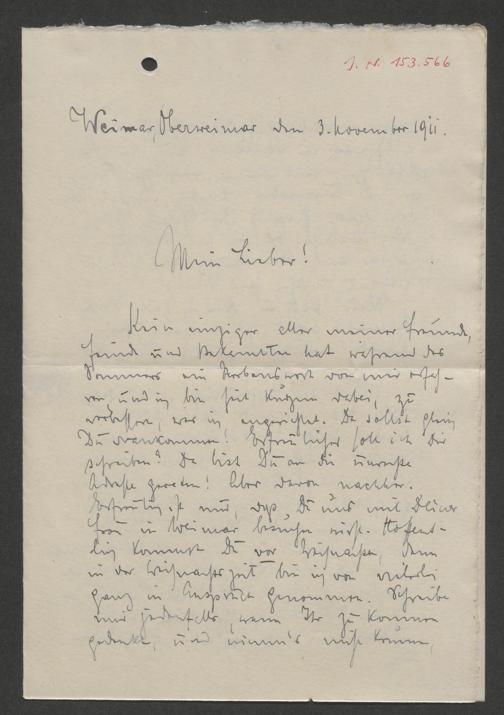 J. N. 153.566
Weimar, Oberweimar den 3. November 1911.
Mein Lieber!
Kein einziger aller meiner Freunde,
Feinde und Bekannten hat während des
Sommers ein Sterbenswort von mir erfah-
ren, und ich bin seit Kurzem dabei, zu
verbessern, was ich angerichtet. Da sollst gleich
Du drankommen! Erfreuliches soll ich Dir
schreiben? Da bist Du an die unrechte
Adresse geraten! Aber davon nachher.
Erfreulich ist nur, dass Du uns mit Deiner
Frau in Weimar besuchen willst. Hoffent-
lich kommst Du vor Weihnachten, denn
in der Weihnachtszeit bin ich von vielerlei
ganz in Anspruch genommen. Schreibe
mir jedenfalls, wann Ihr zu kommen
gedenkt, und nimm's nicht krumm,